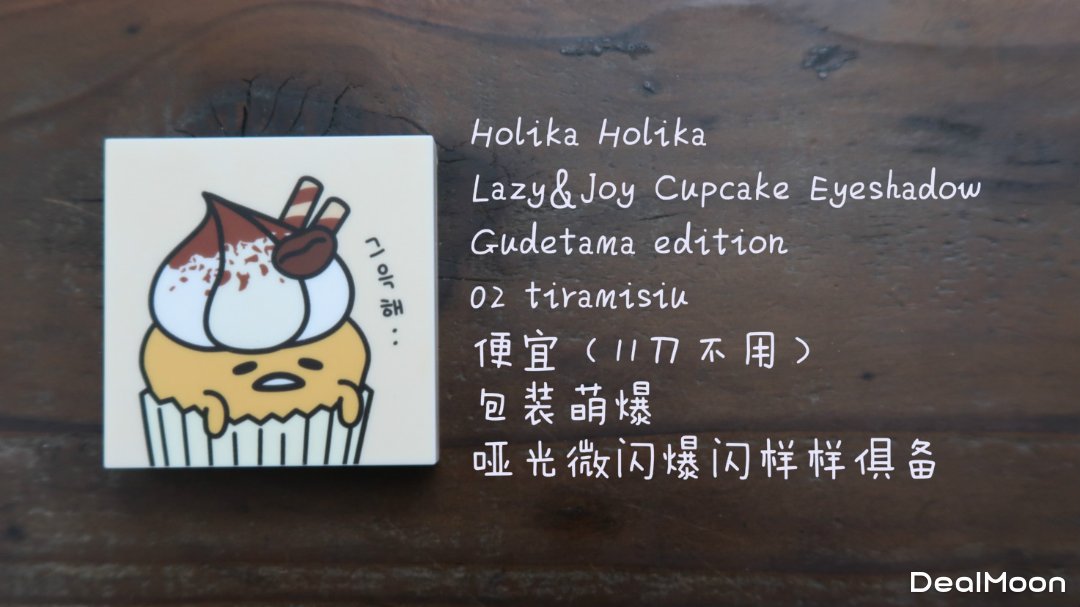 Holika Holika
Lazy&Joy Cupcake Eyeshadow
Gudetama edition
02 tiramisiu
便宜（11刀不用）
包装萌爆
哑光微闪爆闪样样俱备
귀악해..
DealMoon